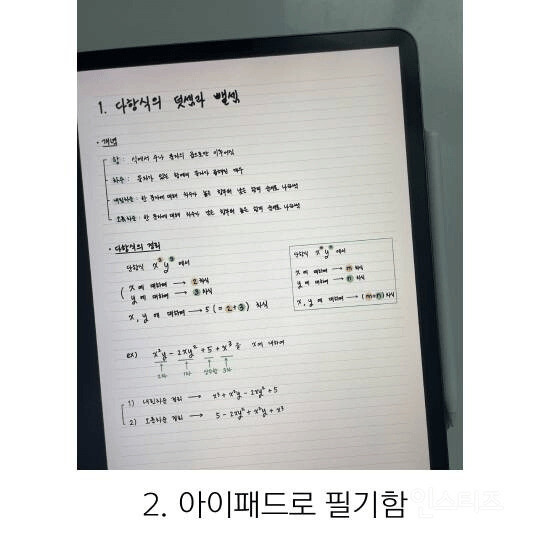 1. 다항식의 덧셈과 뺄셈
· 개념
항 : 식에서 수나 문자의 곱으로만 이루어진
차수 : 문자가 있는 항에서 문자가 곱해진 개수
내림차순 : 한 문자에 대해 차수가 높은 항부터 낮은 항의 순서로 나타낸것
오름차순 : 한 문자에 대해 차수가 낮은 항부터 높은 항의 순서로 나타낸것
· 다항식의 정리
단항식 x²y³ 에서
x 에 대하여 → 2차식
y 에 대하여 → 3차식
x, y 에 대하여 → 5 (= 2+3) 차식
단항식 xᵐyⁿ 에서
x 에 대하여 → m 차식
y 에 대하여 → n 차식
x, y 에 대하여 → (m+n) 차식
ex) x²y - 2xy² + 5 + x³ 을 x에 대하여
2차 1차 상수항 3차
1) 내림차순 정리 → x³ + x²y - 2xy² + 5
2) 오름차순 정리 → 5 - 2xy² + x²y + x³
2. 아이패드로 필기함
인스티즈